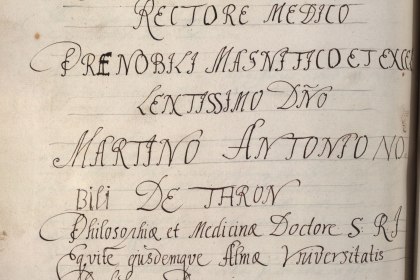 RECTORE MEDICO
PRENOBILI MAGNIFICO ET EXCEL
LENTISSIMO DÑO
MARTINO ANTONIO NO
Bili DE THRON
Philosophiæ et Medicinæ Doctore S. R. I
Equite ejusdemque Almæ Vniversitatis